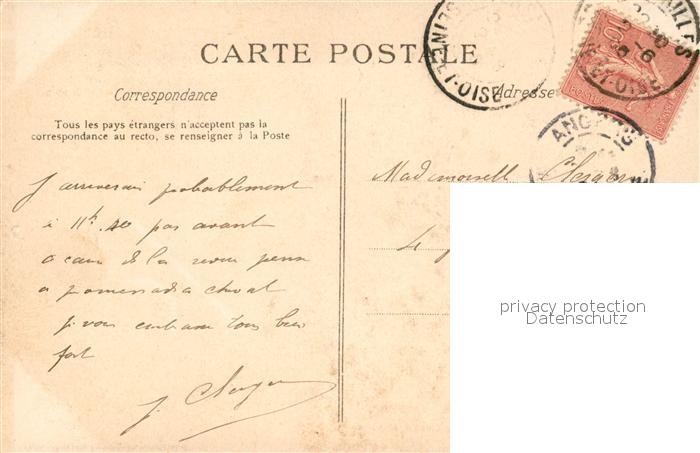 CARTE POSTALE
Correspondance
Tous les pays étrangers n'acceptent pas la
correspondance au recto, se renseigner à la Poste
J'arriverai probablement
à 11h 40 pas avant
a cause de la revue
a promenade a cheval
je vous embrasse tous bien
fort
J.
Adresse
SEINE-ET-OISE
ET-OISE
10
POSTES
Mademoiselle
privacy protection
Datenschutz